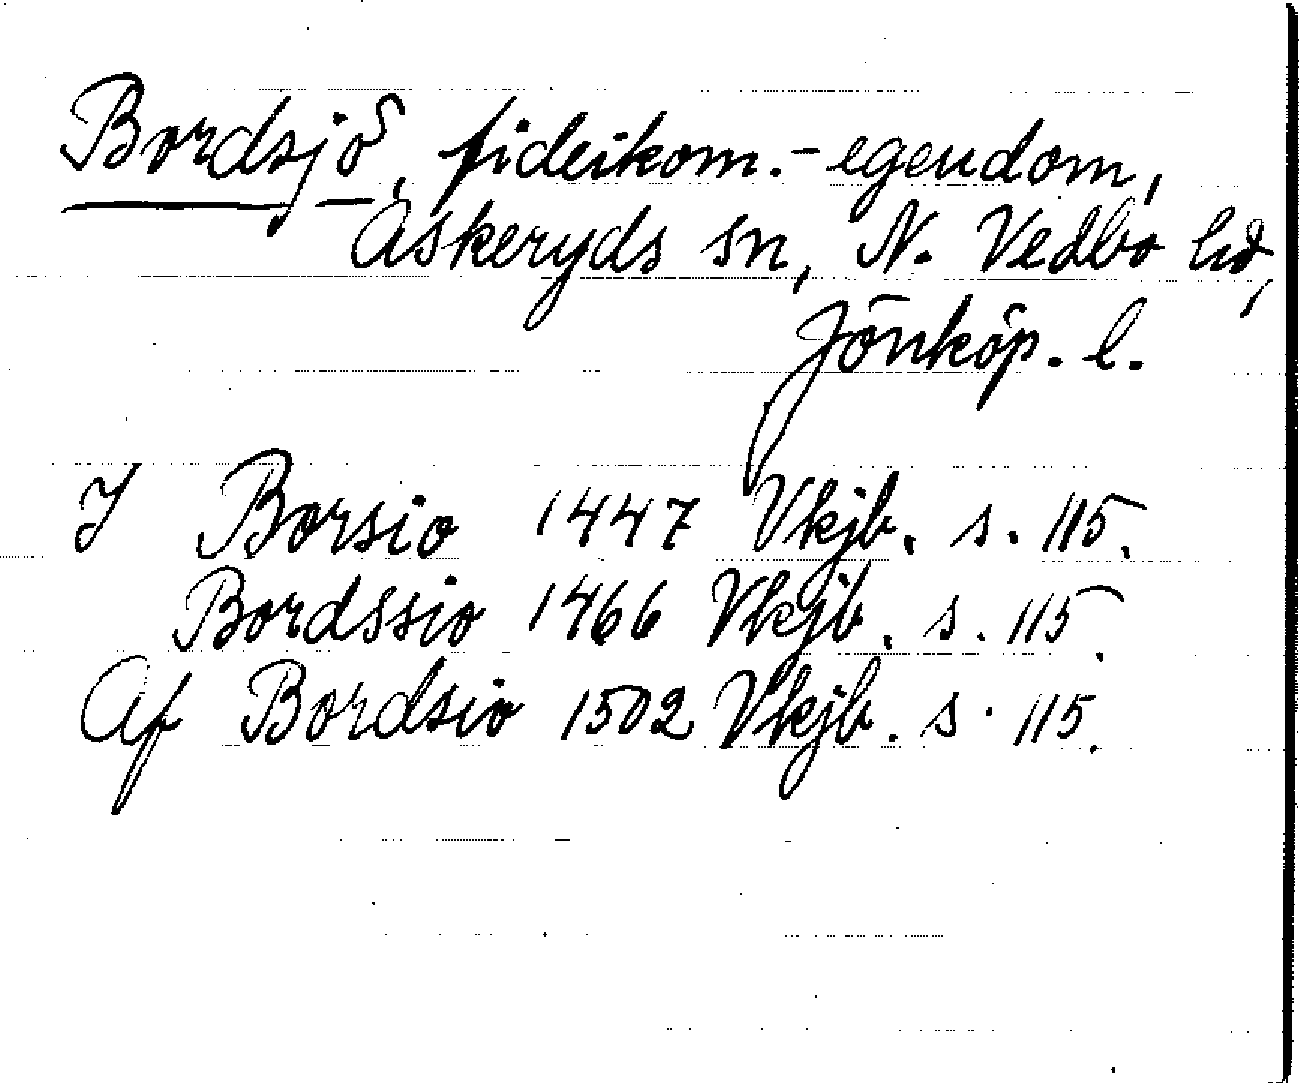 Bordsjö, fideikom.-egendom,
Askeryds sn, N. Vedbo hd,
Jönköp. l.
I Borsio 1447 Vkjb. s. 115.
Bordssio 1466 Vkjb. s. 115.
Af Bordsio 1502 Vkjb. s. 115.